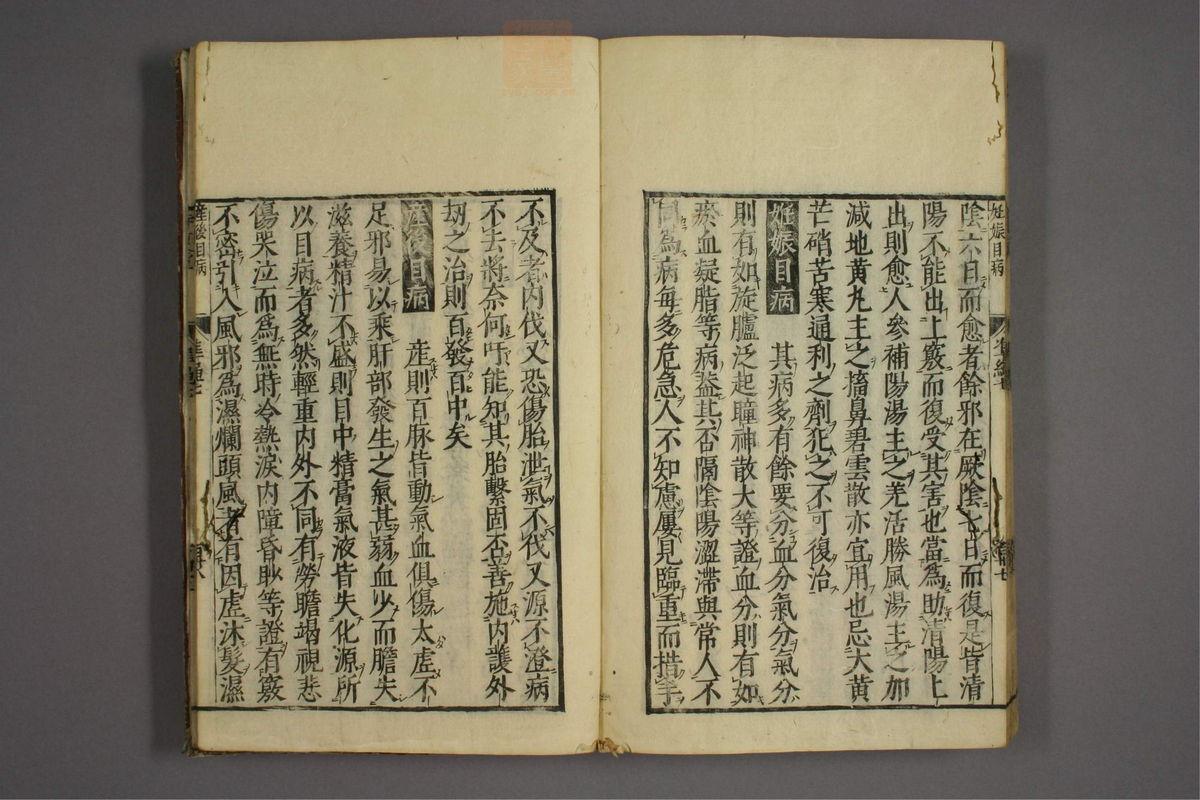 陰六日而愈者餘邪在厥陰七日而復是皆清
陽不能出上竅而復受其害也當為助清陽上
出則愈人參補陽湯主之羌活勝風湯主之加
減地黃丸主之搐鼻碧雲散亦宜用也忌大黃
芒硝苦寒通利之劑犯之不可復治
妊娠目病
其病多有餘要分血分氣分氣分
則有如旋臚泛起瞳神散大等證血分則有如
瘀血凝脂等病葢其否隔陰陽澀滯與常人不
同為病每多危急人不知慮屢見臨重而措手
不及者內伐又恐傷胎泄氣不伐又源不澄病
不去將奈何吁能知其胎繫固否善施內護外
劫之治則百發百中矣
產後目病
產則百脉皆動氣血俱傷太虛不
足邪易以乘肝部發生之氣甚弱血少而膽失
滋養精汁不盛則目中精膏氣液皆失化源所
以目病者多然輕重內外不同有勞瞻竭視悲
傷哭泣而為無時冷熱淚內障昏眇等證有竅
不密引入風邪為濕爛頭風者有因虛沐髮濕
妊娠目病
產後目病